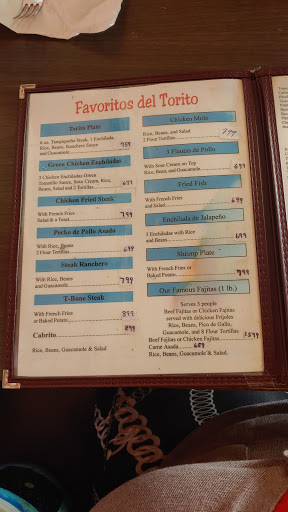 Favoritos del Torito
Torito Plate
6 oz. Tampiqueña Steak, 1 Enchilada,
Rice, Beans, Ranchero Sauce
and Guacamole 799
Green Chicken Enchiladas
3 Chicken Enchiladas Green
Tomatillo Sauce, Sour Cream, Rice,
Beans, Salad and 2 Tortillas 699
Chicken Fried Steak
With French Fries 799
Salad & a Toast
Pecho de Pollo Asado
With Rice, Beans
2 Flour Tortillas 699
Steak Ranchero
With Rice, Beans 799
and Guacamole
T-Bone Steak
With French Fries 899
or Baked Potato
Cabrito
Rice, Beans, Guacamole & Salad
Chicken Mole
Rice, Beans, and Salad
2 Flour Tortillas 799
3 Flautas de Pollo
With Sour Cream on Top 699
Rice, Beans, and Guacamole
Fried Fish
With French Fries
and Salad 699
Enchilada de Jalapeño
3 Enchiladas with Rice
and Beans 699
Shrimp Plate
With French Fries or
Baked Potato 999
Our Famous Fajitas (1 lb.)
Serves 3 people
Beef Fajitas or Chicken Fajitas
served with delicious Frijoles
Rice, Beans, Pico de Gallo,
Guacamole, and 8 Flour Tortillas
Beef Fajitas or Chicken Fajitas
Carne Asada
Rice, Beans, Guacamole & Salad